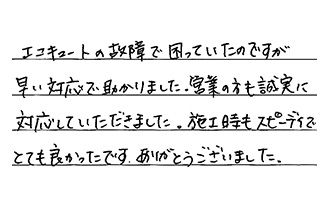 エコキュートの故障で困っていたのですが
早い対応で助かりました。営業の方も誠実に
対応していただきました。施工時もスピーディで
とても良かったです。ありがとうございました。